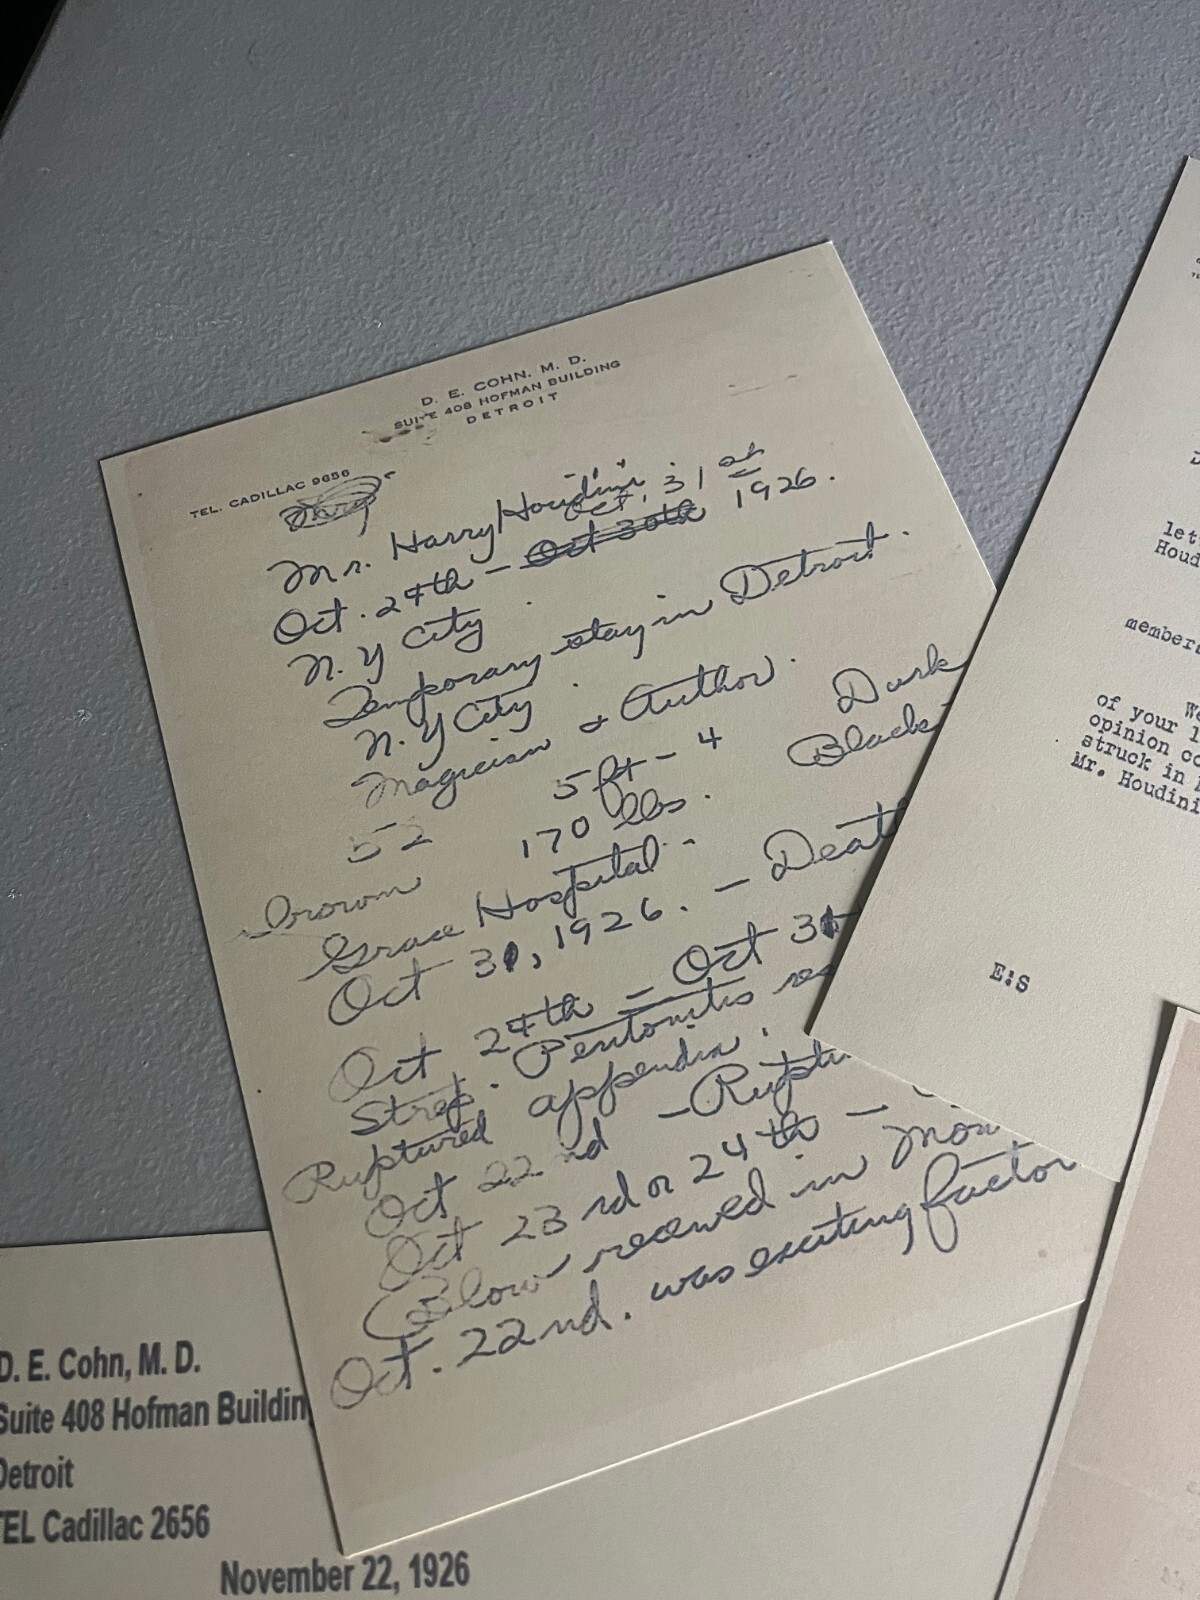 D. E. COHN, M. D.
SUITE 408 HOFMAN BUILDING
DETROIT
TEL. CADILLAC 9656
Mr. Harry Houdini
Oct. 31st
Oct. 24th - Oct 30th 1926.
N. Y City.
Temporary stay in Detroit.
N. Y City.
Magician & Author.
52 5 ft - 4 Dark
brown 170 lbs. Black
Grace Hospital.
Oct 31, 1926. - Deat
Oct 24th - Oct 31
Strep. Peritonitis
Ruptured appendix.
Oct 22nd - Ruptu
Oct 23rd or 24th -
(Blow received in Mon
Oct. 22nd. was exciting factor
let
Houd
members
We
of your l
opinion co
struck in
Mr. Houdini
E:S
D. E. Cohn, M. D.
Suite 408 Hofman Buildin
Detroit
TEL Cadillac 2656
November 22, 1926